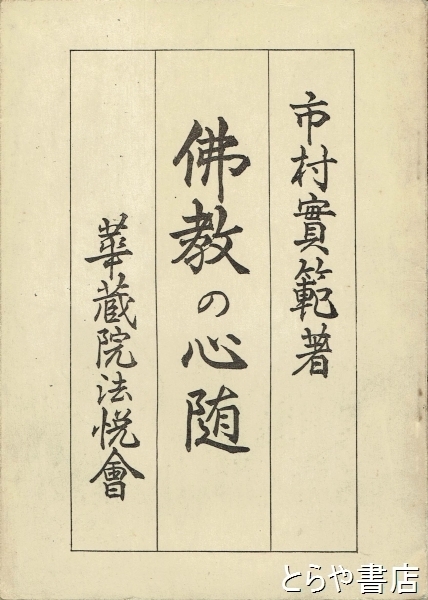 市村實範著
佛教の心随
華蔵院法悦會
とらや書店